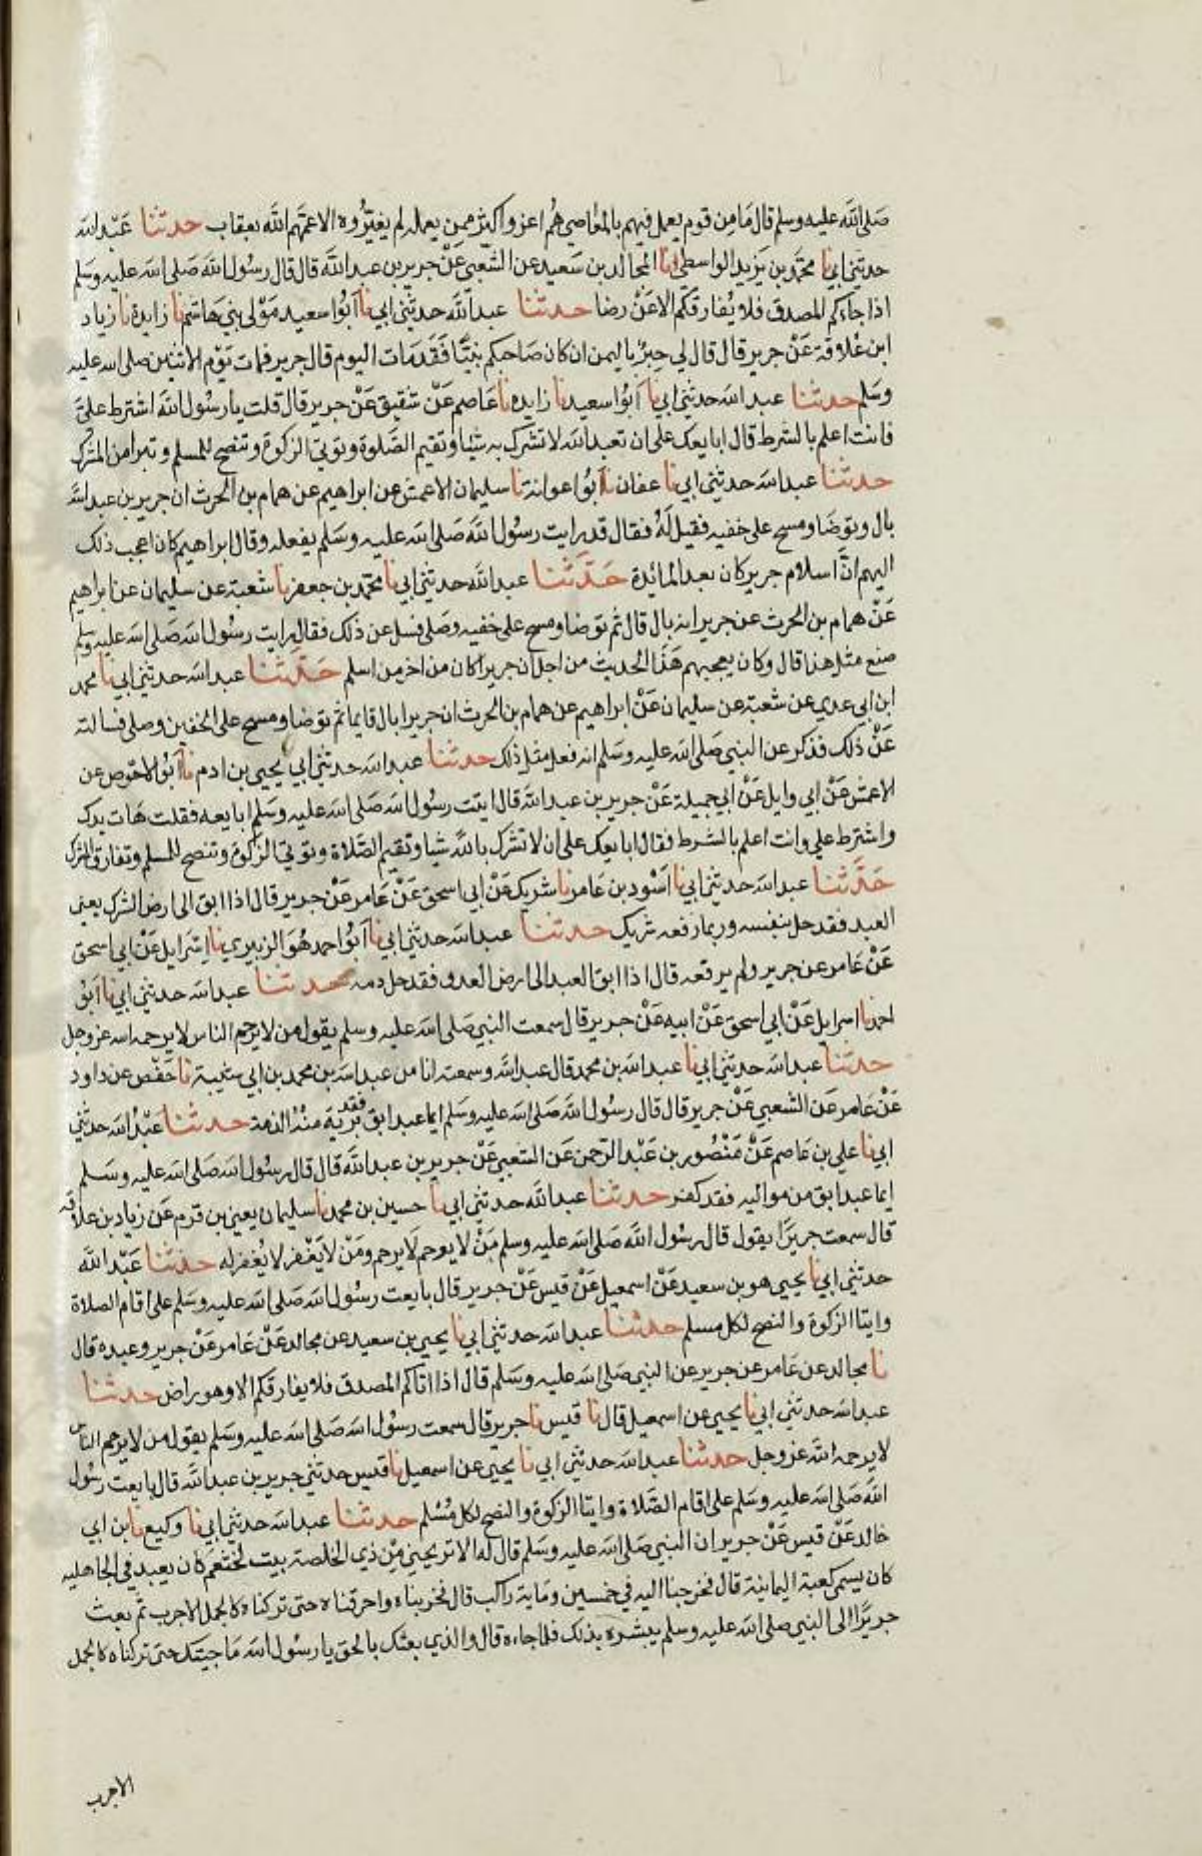 صلى الله عليه وسلم قال ما من قوم يعمل فيهم بالمعاصي هم اعز واكثر ممن يعمله لم يغيروه الا عمهم الله بعقاب حدثنا عبد الله
حدثني ابي نا محمد بن يزيد الواسطي نا المجالد بن سعيد عن الشعبي عن جرير بن عبد الله قال قال رسول الله صلى الله عليه وسلم
اذا جاءكم المصدق فلا يفارقكم الا عن رضا حدثنا عبد الله حدثني ابي نا ابو سعيد مولى بني هاشم نا زايدة نا زياد
ابن علاقة عن جرير قال قال لي حبر باليمن ان كان صاحبكم نبيا فقد مات اليوم قال جرير فمات يوم الاثنين صلى الله عليه
وسلم حدثنا عبد الله حدثني ابي نا ابو سعيد نا زايده نا عاصم عن شقيق عن جرير قال قلت يا رسول الله اشترط علي
فانت اعلم بالشرط قال ابايعك على ان تعبد الله لا تشرك به شيا وتقيم الصلوة وتوتي الزكوة وتنصح للمسلم وتبرا من المشرك
حدثنا عبد الله حدثني ابي نا عفان نا ابو عوانة نا سليمان الاعمش عن ابراهيم عن همام بن الحرث ان جرير بن عبد الله
بال وتوضا ومسح على خفيه فقيل له فقال قد رايت رسول الله صلى الله عليه وسلم يفعله وقال ابراهيم كان اعجب ذلك
اليهم ان اسلام جرير كان بعد المائدة حدثنا عبد الله حدثني ابي نا محمد بن جعفر نا شعبة عن سليمان عن ابراهيم
عن همام بن الحرث عن جرير انه بال قال ثم توضا ومسح على خفيه وصلى فسل عن ذلك فقال رايت رسول الله صلى الله عليه وسلم
صنع مثل هذا قال وكان يعجبهم هذا الحديث من اجل ان جريرا كان من اخر من اسلم حدثنا عبد الله حدثني ابي نا محمد
ابن ابي عدي عن شعبة عن سليمان عن ابراهيم عن همام بن الحرث ان جريرا بال قايما ثم توضا ومسح على الخفين وصلى فسالته
عن ذلك فذكر عن النبي صلى الله عليه وسلم انه فعل مثل ذلك حدثنا عبد الله حدثني ابي يحيى بن ادم نا ابو الاحوص عن
الاعمش عن ابي وايل عن ابي جميلة عن جرير بن عبد الله قال اتيت رسول الله صلى الله عليه وسلم ابايعه فقلت هات يدك
واشترط علي وانت اعلم بالشرط فقال ابايعك على ان لا تشرك بالله شيا وتقيم الصلاة وتوتي الزكوة وتنصح للمسلم وتفارق المشرك
حدثنا عبد الله حدثني ابي نا اسود بن عامر نا شريك عن ابي اسحق عن عامر عن جرير قال اذا ابق الى ارض الشرك يعني
العبد فقد حل بنفسه وربما رفعه شريك حدثنا عبد الله حدثني ابي نا ابو احمد هو الزبيري نا اسرايل عن ابي اسحق
عن عامر عن جرير ولم يرفعه قال اذا ابق العبد الى ارض العدو فقد حل دمه حدثنا عبد الله حدثني ابي نا ابو
احمد نا اسرايل عن ابي اسحق عن ابيه عن جرير قال سمعت النبي صلى الله عليه وسلم يقول من لا يرحم الناس لا يرحمه الله عز وجل
حدثنا عبد الله حدثني ابي نا عبد الله بن محمد قال عبد الله وسمعته انا من عبد الله بن محمد بن ابي شيبة نا حفص عن داود
عن عامر عن الشعبي عن جرير قال قال رسول الله صلى الله عليه وسلم ايما عبد ابق فقد برية منه الذمة حدثنا عبد الله حدثني
ابي نا علي بن عاصم عن منصور بن عبد الرحمن عن الشعبي عن جرير بن عبد الله قال قال رسول الله صلى الله عليه وسلم
ايما عبد ابق من مواليه فقد كفر حدثنا عبد الله حدثني ابي نا حسين بن محمد نا سليمان يعني بن قرم عن زياد بن علاقه
قال سمعت جريرا يقول قال رسول الله صلى الله عليه وسلم من لا يرحم لا يرحم ومن لا يغفر لا يغفر له حدثنا عبد الله
حدثني ابي نا يحيى هو بن سعيد عن اسمعيل عن قيس عن جرير قال بايعت رسول الله صلى الله عليه وسلم على اقام الصلاة
وايتا الزكوة والنصح لكل مسلم حدثنا عبد الله حدثني ابي نا يحيى بن سعيد عن مجالد عن عامر عن جرير وعبده قال
نا مجالد عن عامر عن جرير عن النبي صلى الله عليه وسلم قال اذا اتاكم المصدق فلا يفارقكم الا وهو راض حدثنا
عبد الله حدثني ابي نا يحيى عن اسمعيل قال نا قيس نا جرير قال سمعت رسول الله صلى الله عليه وسلم يقول من لا يرحم الناس
لا يرحمه الله عز وجل حدثنا عبد الله حدثني ابي نا يحيى عن اسمعيل نا قيس حدثني جرير بن عبد الله قال بايعت رسول
الله صلى الله عليه وسلم على اقام الصلاة وايتا الزكوة والنصح لكل مسلم حدثنا عبد الله حدثني ابي نا وكيع نا بن ابي
خالد عن قيس عن جرير ان النبي صلى الله عليه وسلم قال له الا تريحني من ذي الخلصة بيت لخثعم كان يعبد في الجاهليه
كان يسمى كعبة اليمانية قال فخرجنا اليه في خمسين وماية راكب قال فخربناه واحرقناه حتى تركناه كالجمل الاجرب ثم بعث
جريرا الى النبي صلى الله عليه وسلم يبشره بذلك فلما جاءه قال والذي بعثك بالحق يا رسول الله ما جيتك حتى تركناه كالجمل
الاجرب